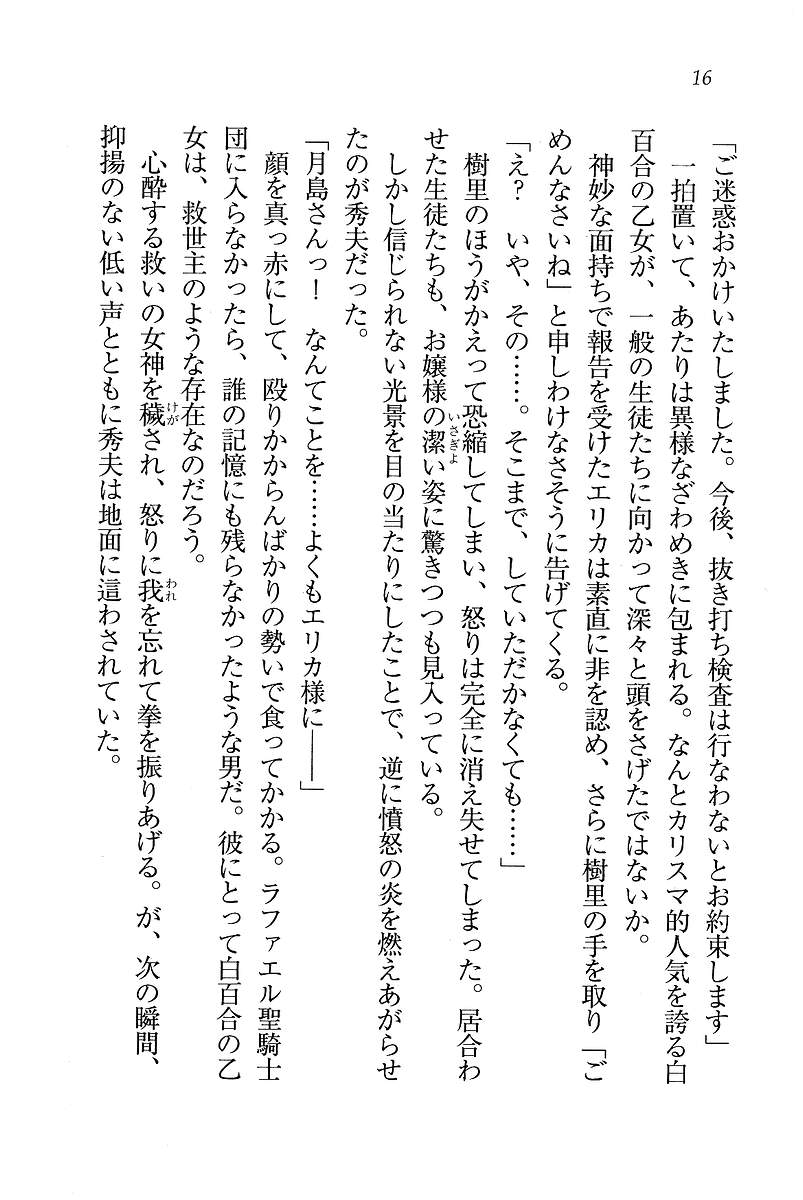 16
「ご迷惑おかけいたしました。今後、抜き打ち検査は行なわないとお約束します」
　一拍置いて、あたりは異様なざわめきに包まれる。なんとカリスマ的人気を誇る白
百合の乙女が、一般の生徒たちに向かって深々と頭をさげたではないか。
　神妙な面持ちで報告を受けたエリカは素直に非を認め、さらに樹里の手を取り「ご
めんなさいね」と申しわけなさそうに告げてくる。
「え？　いや、その……。そこまで、していただかなくても……」
　樹里のほうがかえって恐縮してしまい、怒りは完全に消え失せてしまった。居合わ
せた生徒たちも、お嬢様の潔い姿に驚きつつも見入っている。
いさぎよ
　しかし信じられない光景を目の当たりにしたことで、逆に憤怒の炎を燃えあがらせ
たのが秀夫だった。
「月島さんっ！　なんてことを……よくもエリカ様に――」
　顔を真っ赤にして、殴りかからんばかりの勢いで食ってかかる。ラファエル聖騎士
団に入らなかったら、誰の記憶にも残らなかったような男だ。彼にとって白百合の乙
女は、救世主のような存在なのだろう。
　心酔する救いの女神を穢され、怒りに我を忘れて拳を振りあげる。が、次の瞬間、
けが
われ
抑揚のない低い声とともに秀夫は地面に這わされていた。